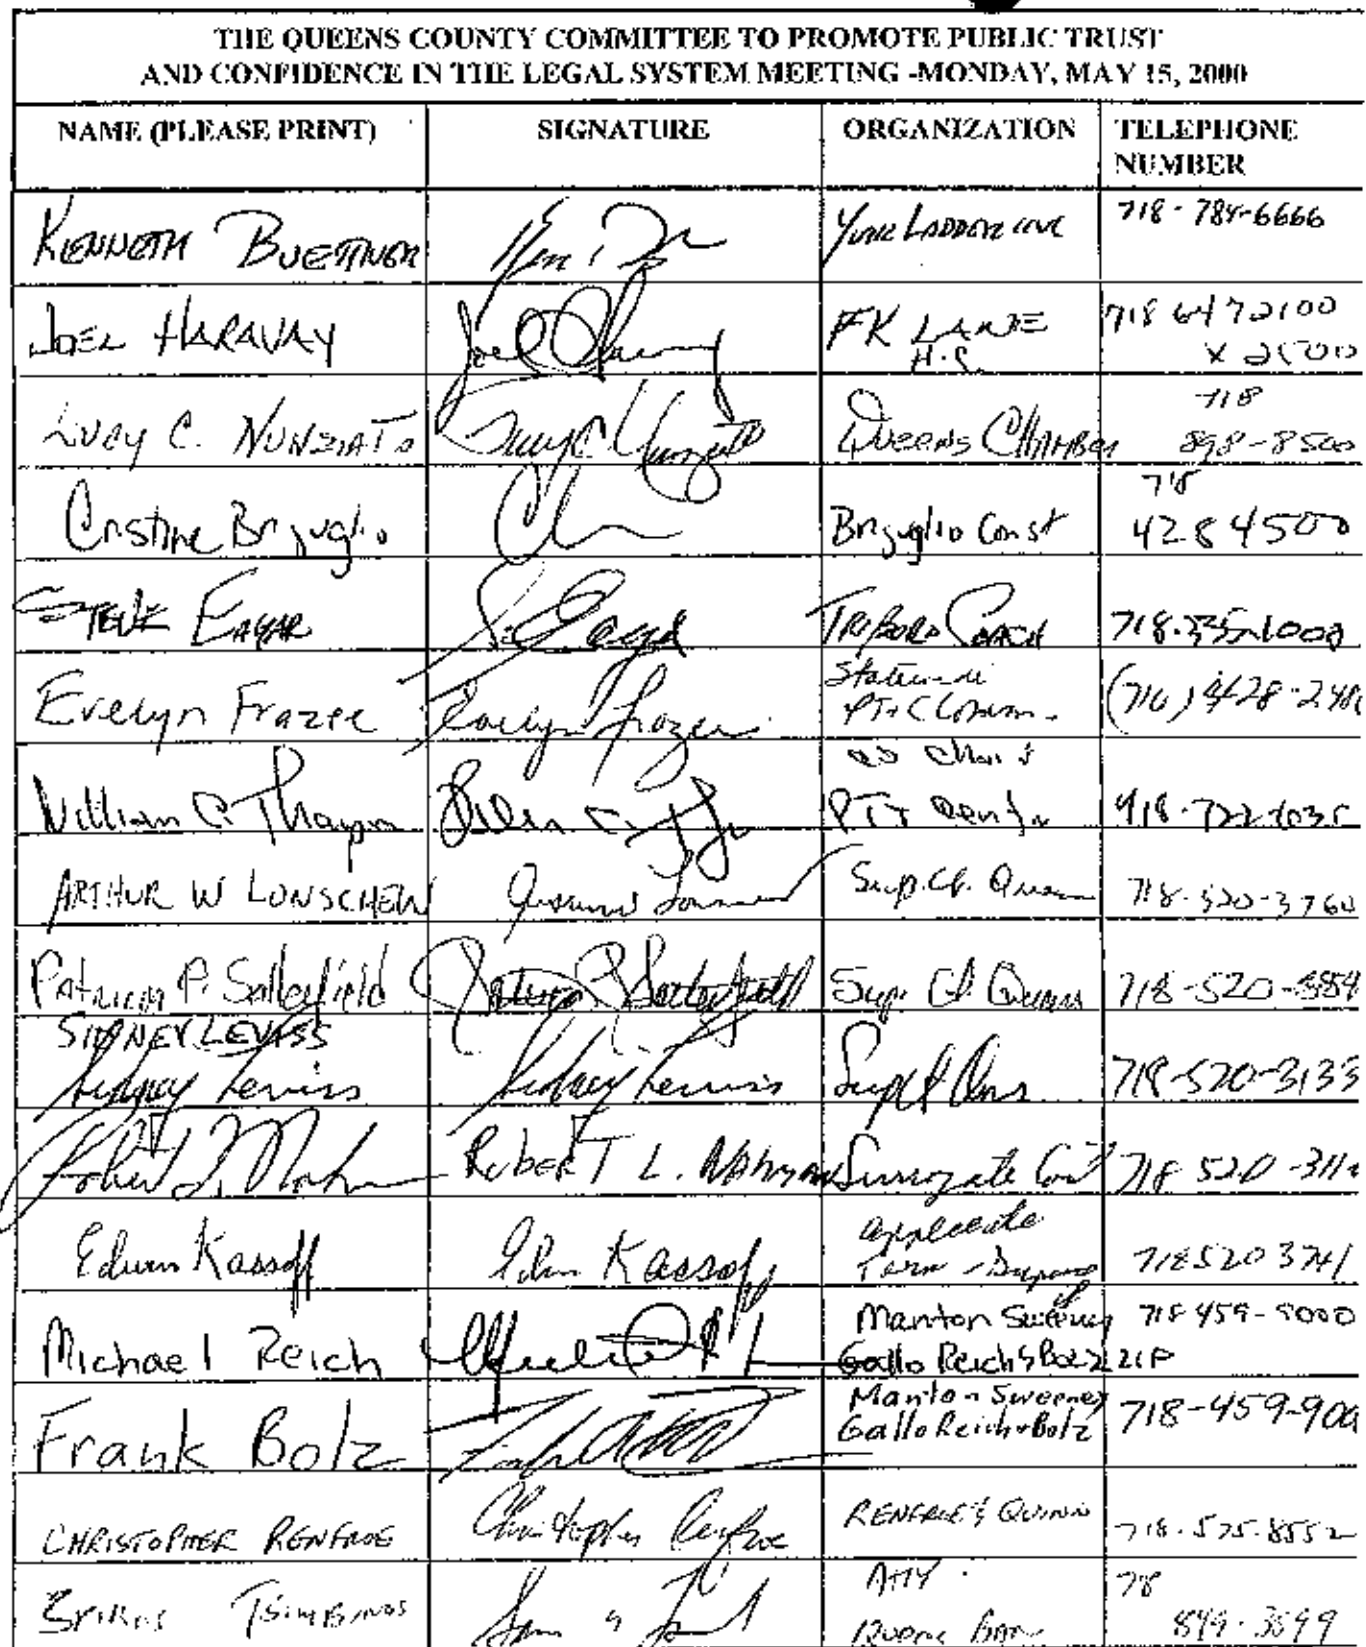 THE QUEENS COUNTY COMMITTEE TO PROMOTE PUBLIC TRUST
AND CONFIDENCE IN THE LEGAL SYSTEM MEETING -MONDAY, MAY 15, 2000
NAME (PLEASE PRINT) SIGNATURE ORGANIZATION TELEPHONE
NUMBER
KENNETH BUETTNER YORK LADDER INC 718-784-6666
JOEL HARAVAY FK LANE 718 6472100
H.S.
LUCY C. NUNZIATO QUEENS CHAMBER 718
898-8500
Cristine Briguglio Briguglio Const 718
4284500
STEVE EAGAR TRIBORO COACH 718.335-1000
Evelyn Frazee Evelyn Frazee Statewide
William C. Thompson
ARTHUR W LONSCHEIN Sup. Ct. Queens 718-520-3760
Patricia P. Satterfield Patricia P. Satterfield Sup. Ct. Queens 718-520-
SIDNEY LEVISS
Sidney Leviss Sidney Leviss Sup Ct Qns 718-520-3133
Robert L. Nahman ROBERT L. NAHMAN Surrogate Court 718 520-311
Edwin Kassoff Edwin Kassoff Appellate
Term - Supreme 718 520 3741
Michael Reich Manton Sweeney 718-459-9000
Gallo Reich & Bolz LLP
Frank Bolz Manton Sweeney
Gallo Reich & Bolz 718-459-900
CHRISTOPHER RENFROE Christopher Renfroe RENFROE & QUINN 718.575.8552
SPIROS TSIMBINOS ATTY 718
Queens BAR 849-3599